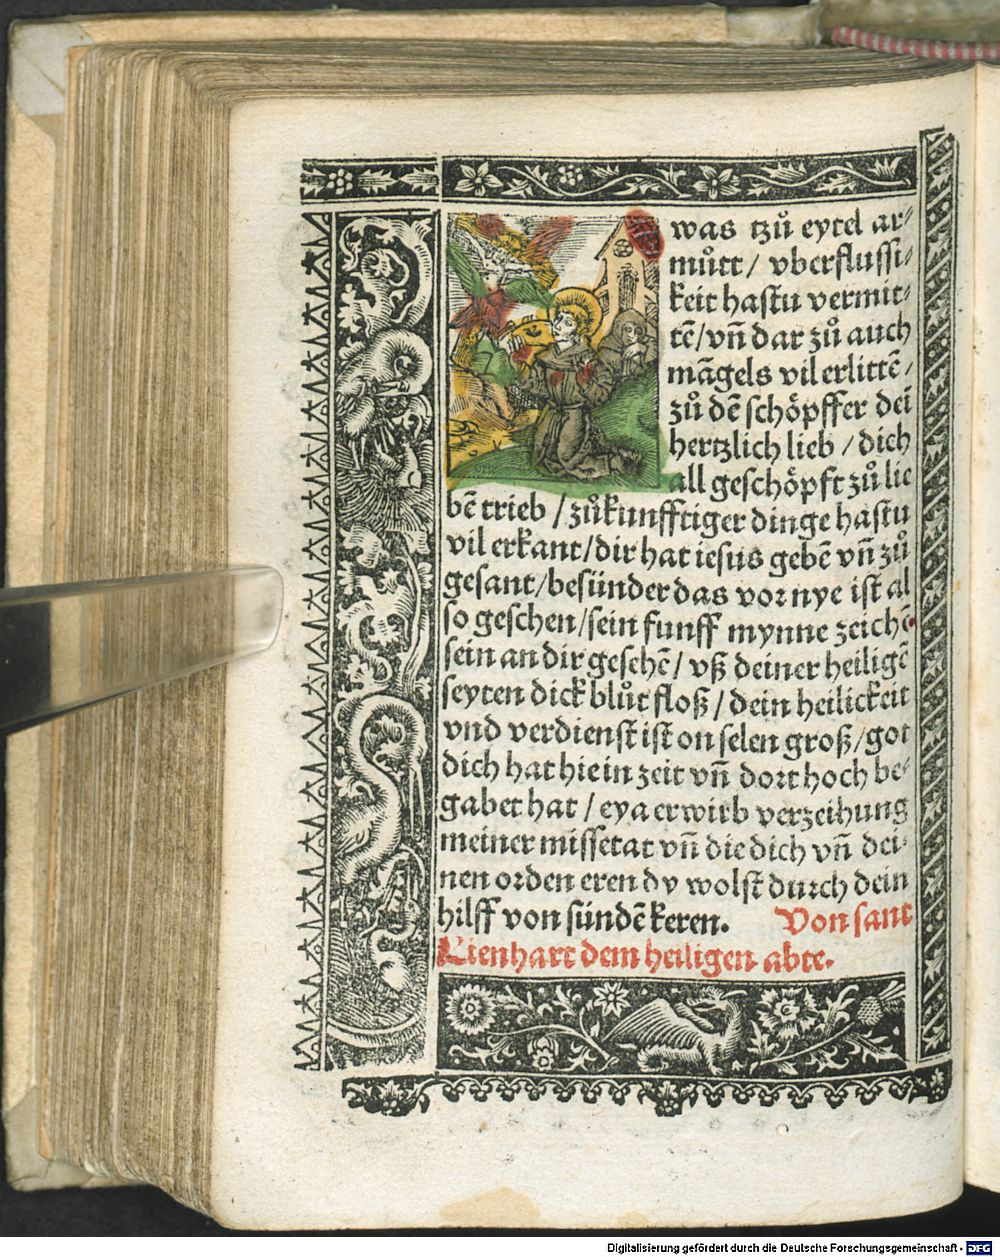 was tzů eytel ar⸗
můtt / vberflussi⸗
keit hastu vermit⸗
tē/vn̄ dar zů auch
māgels vil erlittē /
zů dē schöpffer dei
hertzlich lieb / dich
all geschöpft zů lie
bē trieb / zůkunfftiger dinge hastu
vil erkant/dir hat iesus gebē vn̄ zů
gesant/besünder das vor nye ist al
so geschen/sein funff mynne zeichē
sein an dir gesehē/ vß deiner heiligē
seyten dick blůt floß / dein heilickeit
vnd verdienst ist on selen groß/got
dich hat hie in zeit vn̄ dort hoch be⸗
gabet hat / eya erwirb verzeihung
meiner missetat vn̄ die dich vn̄ dei⸗
nen orden eren dv wolst durch dein
hilff von sündē keren. Von sant
Lienhart dem heiligen abte.
Digitalisierung gefördert durch die Deutsche Forschungsgemeinschaft - DFG